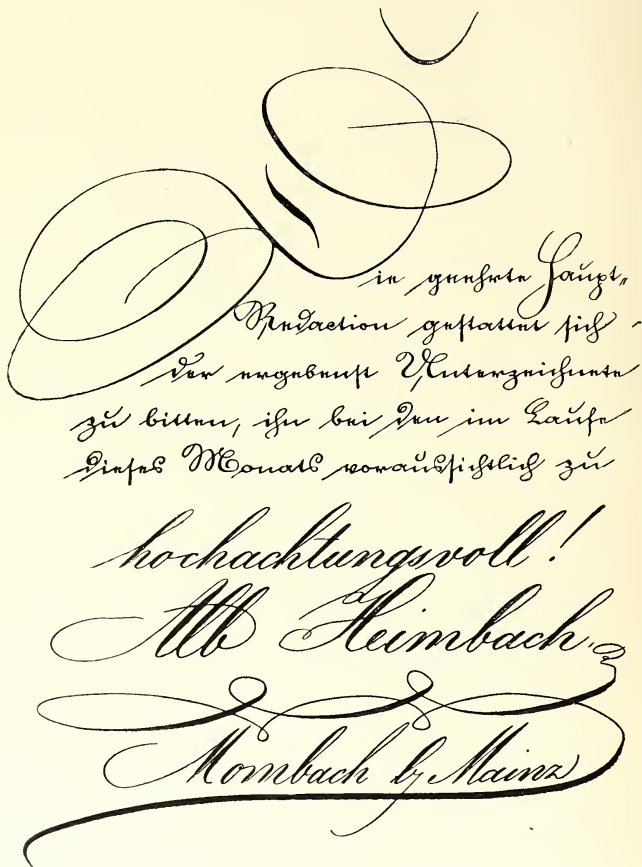 Die geehrte Haupt-
Redaction gestattet sich
der ergebenst Unterzeichnete
zu bitten, ihn bei den im Laufe
dieses Monats voraussichtlich zu
hochachtungsvoll!
Alb Heimbach.
Mombach by Mainz